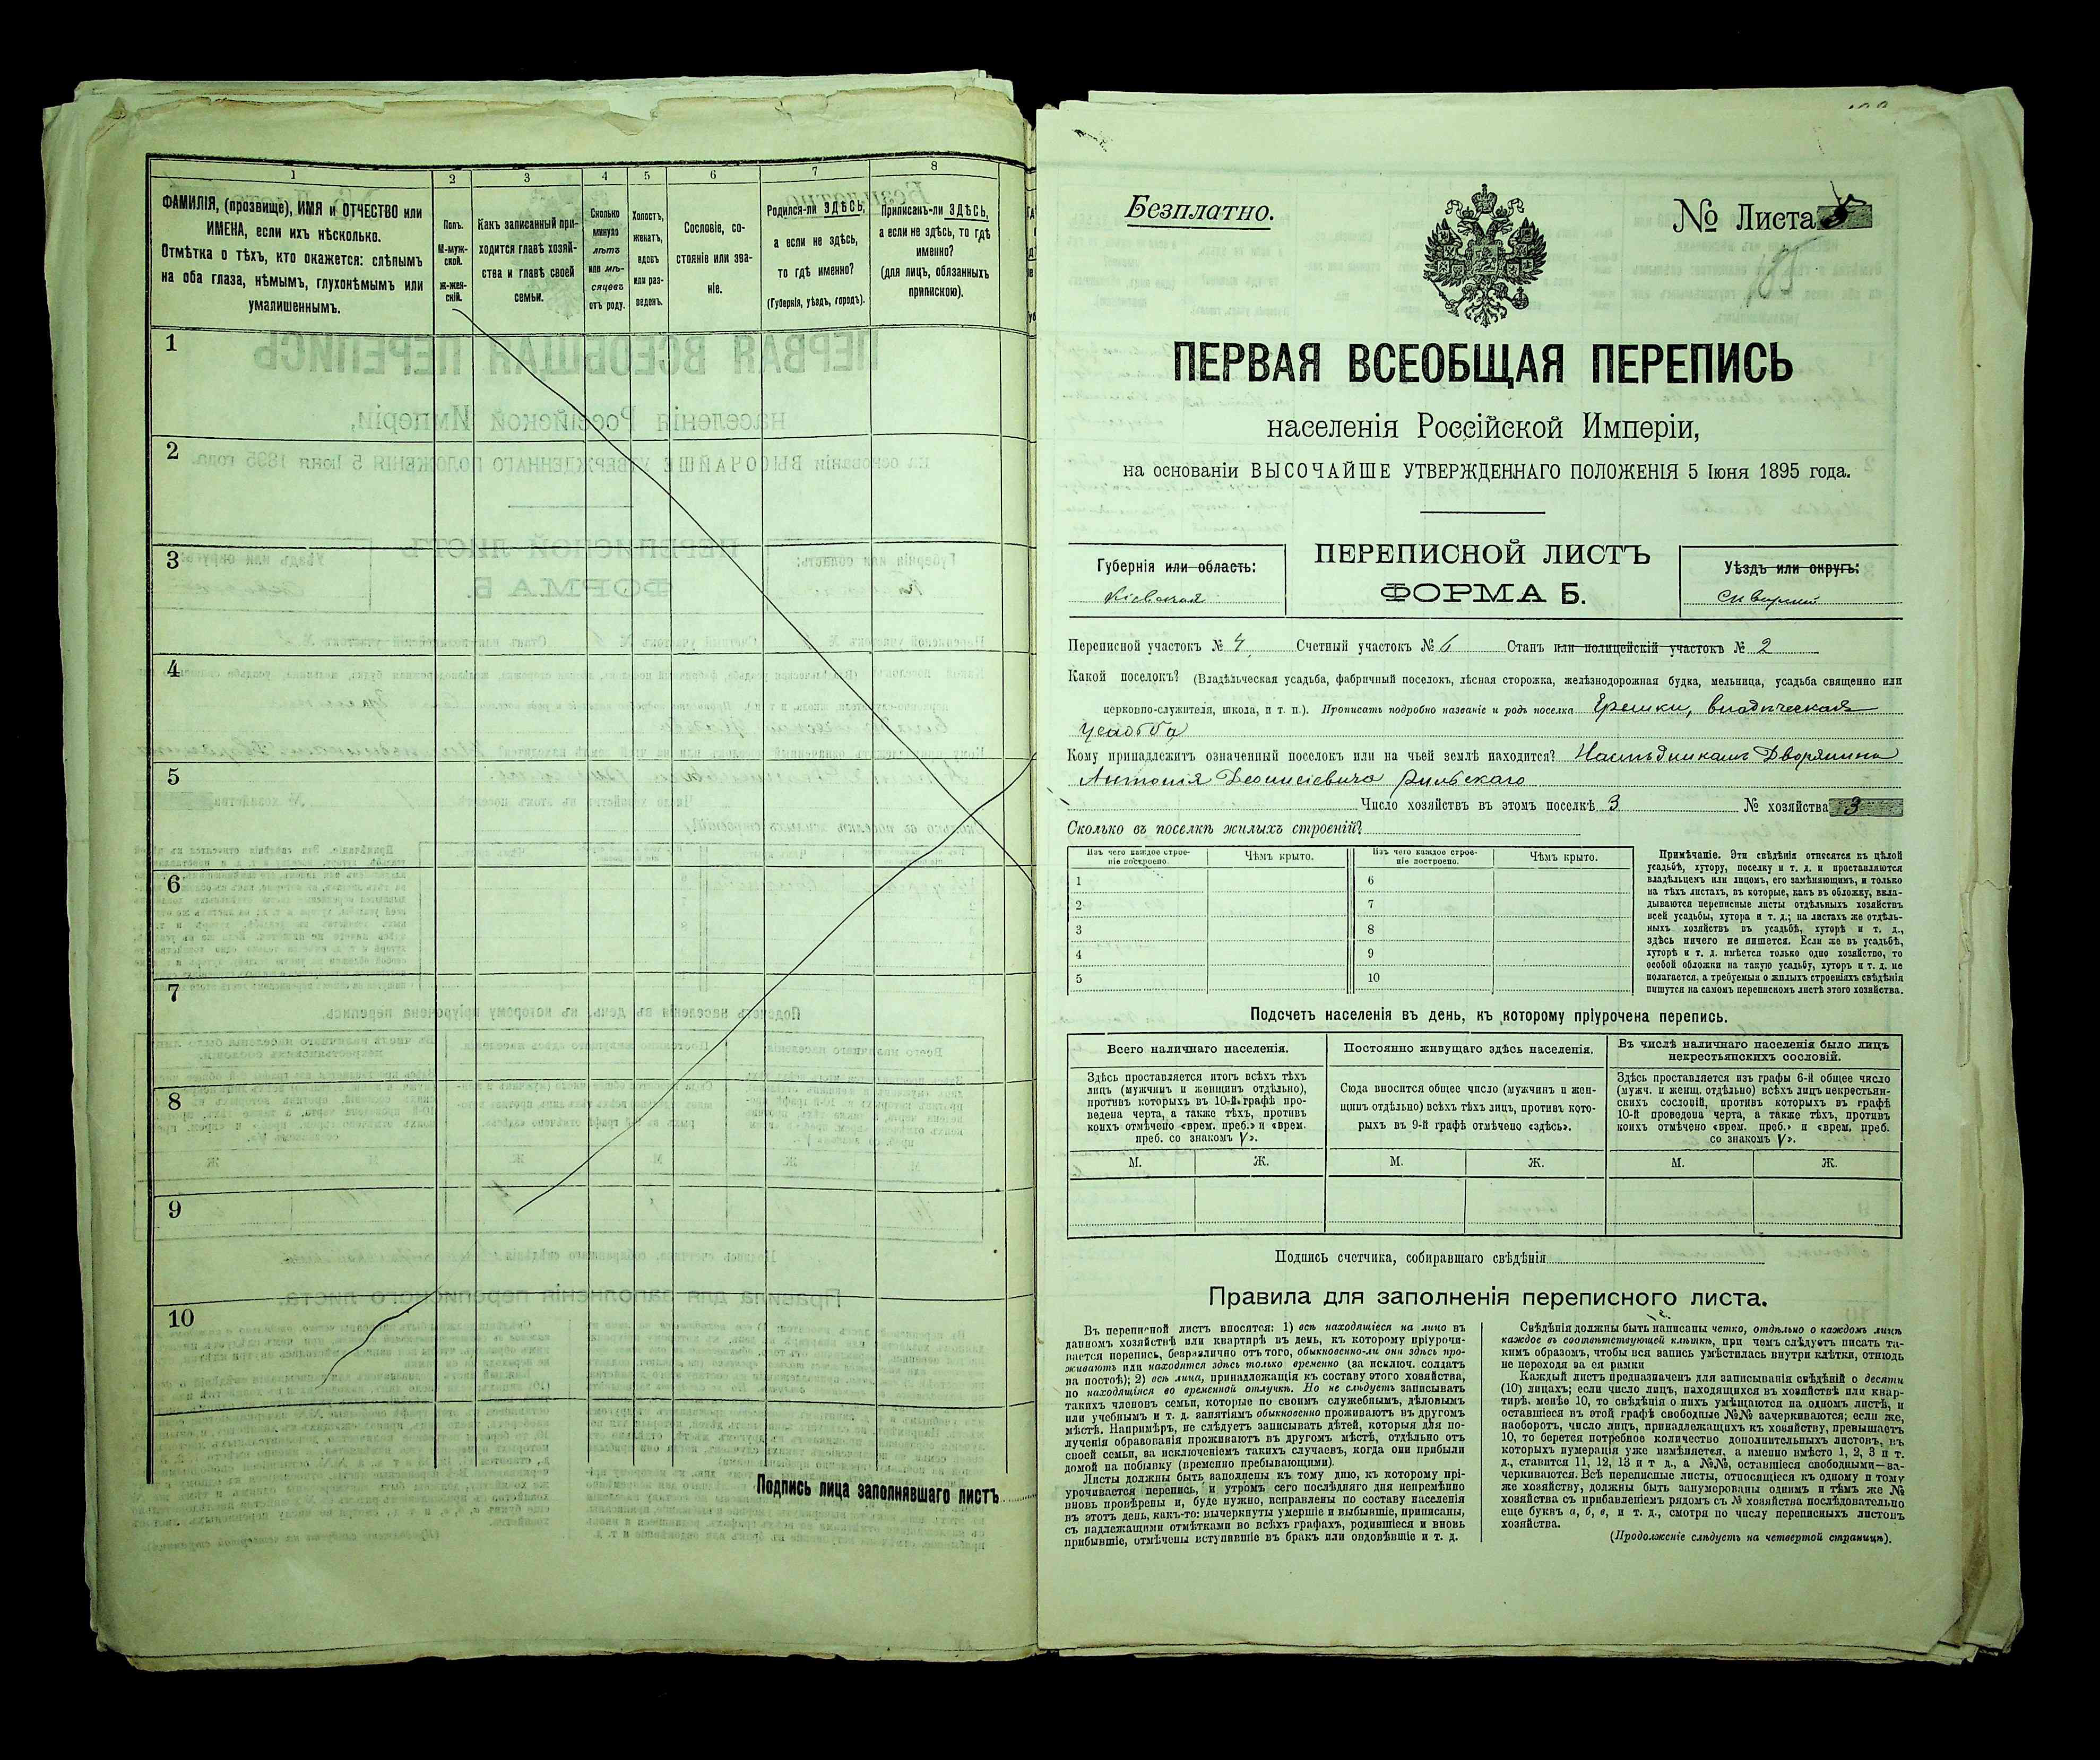 1
2
3
4
5
6
7
8
ФАМИЛІЯ, (прозвище), ИМЯ и ОТЧЕСТВО или
ИМЕНА, если ихъ нѣсколько.
Отмѣтка о тѣхъ, кто окажется: слѣпымъ
на оба глаза, нѣмымъ, глухонѣмымъ или
умалишеннымъ.
Полъ.
М-муж-
ской.
ж-жен-
скій.
Какъ записанный при-
ходится главѣ хозяй-
ства и главѣ своей
семьи.
Сколько
минуло
лѣтъ
или мѣ-
сяцевъ
отъ роду.
Холостъ,
женатъ,
вдовъ
или раз-
веденъ.
Сословіе, со-
стояніе или зва-
ніе.
Родился-ли ЗДѢСЬ,
а если не здѣсь,
то гдѣ именно?
(Губернія, уѣздъ, городъ).
Приписанъ-ли ЗДѢСЬ,
а если не здѣсь, то гдѣ
именно?
(для лицъ, обязанныхъ
припискою).
1
2
3
4
5
6
7
8
9
10
Подпись лица заполнявшаго листъ
Безплатно.
№ Листа
ПЕРВАЯ ВСЕОБЩАЯ ПЕРЕПИСЬ
населенія Россійской Имперіи,
на основаніи ВЫСОЧАЙШЕ УТВЕРЖДЕННАГО ПОЛОЖЕНІЯ 5 Іюня 1895 года.
ПЕРЕПИСНОЙ ЛИСТЪ
ФОРМА Б.
Губернія или область:
Кіевская
Уѣздъ или округъ:
Сквирский
Переписной участокъ № 4 Счетный участокъ № 6 Станъ или полицейскій участокъ № 2
Какой поселокъ? (Владѣльческая усадьба, фабричный поселокъ, лѣсная сторожка, желѣзнодорожная будка, мельница, усадьба священно или
церковно-служителя, школа, и т. п.). Прописать подробно названіе и родъ поселка Ерешки,
Усадьба
Кому принадлежитъ означенный поселокъ или на чьей землѣ находится? Наслѣдникамъ Дворянина
Антонія Деонисіевича Рыльскаго
Число хозяйствъ въ этомъ поселкѣ 3 № хозяйства 3
Сколько въ поселкѣ жилыхъ строеній?
Изъ чего каждое строе-
ніе построено.
Чѣмъ крыто.
Изъ чего каждое строе-
ніе построено.
Чѣмъ крыто.
1
2
3
4
5
6
7
8
9
10
Примѣчаніе. Эти свѣдѣнія относятся къ цѣлой
усадьбѣ, хутору, поселку и т. д. и проставляются
владѣльцемъ или лицомъ, его замѣняющимъ, и только
на тѣхъ листахъ, въ которые, какъ въ обложку, вкла-
дываются переписные листы отдѣльныхъ хозяйствъ
всей усадьбы, хутора и т. д.; на листахъ же отдѣль-
ныхъ хозяйствъ въ усадьбѣ, хуторѣ и т. д.,
здѣсь ничего не пишется. Если же въ усадьбѣ,
хуторѣ и т. д. имѣется только одно хозяйство, то
особой обложки на такую усадьбу, хуторъ и т. д. не
полагается, а требуемыя о жилыхъ строеніяхъ свѣдѣнія
пишутся на самомъ переписномъ листѣ этого хозяйства.
Подсчетъ населенія въ день, къ которому пріурочена перепись.
Всего наличнаго населенія.
Постоянно живущаго здѣсь населенія.
Въ числѣ наличнаго населенія было лицъ
некрестьянскихъ сословій.
Здѣсь проставляется итогъ всѣхъ тѣхъ
лицъ (мужчинъ и женщинъ отдѣльно),
противъ которыхъ въ 10-й графѣ про-
ведена черта, а также тѣхъ, противъ
коихъ отмѣчено «врем. преб.» и «врем.
преб. со знакомъ V».
Сюда вносится общее число (мужчинъ и жен-
щинъ отдѣльно) всѣхъ тѣхъ лицъ, противъ кото-
рыхъ въ 9-й графѣ отмѣчено «здѣсь».
Здѣсь проставляется изъ графы 6-й общее число
(мужч. и женщ. отдѣльно) всѣхъ лицъ некрестьян-
скихъ сословій, противъ которыхъ въ графѣ
10-й проведена черта, а также тѣхъ, противъ
коихъ отмѣчено «врем. преб.» и «врем. преб.
со знакомъ V».
М.
Ж.
М.
Ж.
М.
Ж.
Подпись счетчика, собиравшаго свѣдѣнія
Правила для заполненія переписного листа.
Въ переписной листъ вносятся: 1) всѣ находящіеся на лицо въ
данномъ хозяйствѣ или квартирѣ въ день, къ которому пріурочи-
вается перепись, безразлично отъ того, обыкновенно-ли они здѣсь про-
живаютъ или находятся здѣсь только временно (за исключ. солдатъ
на постоѣ); 2) всѣ лица, принадлежащія къ составу этого хозяйства,
но находящіяся во временной отлучкѣ. Но не слѣдуетъ записывать
такихъ членовъ семьи, которые по своимъ служебнымъ, дѣловымъ
или учебнымъ и т. д. занятіямъ обыкновенно проживаютъ въ другомъ
мѣстѣ. Напримѣръ, не слѣдуетъ записывать дѣтей, которыя для по-
лученія образованія проживаютъ въ другомъ мѣстѣ, отдѣльно отъ
своей семьи, за исключеніемъ такихъ случаевъ, когда они прибыли
домой на побывку (временно пребывающими).
Листы должны быть заполнены къ тому дню, къ которому прі-
урочивается перепись, и утромъ сего послѣдняго дня непремѣнно
вновь провѣрены и, буде нужно, исправлены по составу населенія
въ этотъ день, какъ-то: вычеркнуты умершіе и выбывшіе, приписаны,
съ надлежащими отмѣтками во всѣхъ графахъ, родившіеся и вновь
прибывшіе, отмѣчены вступившіе въ бракъ или овдовѣвшіе и т. д.
Свѣдѣнія должны быть написаны четко, отдѣльно о каждомъ лицѣ
каждое въ соотвѣтствующей клѣткѣ, при чемъ слѣдуетъ писать та-
кимъ образомъ, чтобы вся запись умѣстилась внутри клѣтки, отнюдь
не переходя за ея рамки
Каждый листъ предназначенъ для записыванія свѣдѣній о десяти
(10) лицахъ; если число лицъ, находящихся въ хозяйствѣ или квар-
тирѣ, менѣе 10, то свѣдѣнія о нихъ умѣщаются на одномъ листѣ, и
оставшіеся въ этой графѣ свободные №№ зачеркиваются; если же,
наоборотъ, число лицъ, принадлежащихъ къ хозяйству, превышаетъ
10, то берется потребное количество дополнительныхъ листовъ, въ
которыхъ нумерація уже измѣняется, а именно вмѣсто 1, 2, 3 и т.
д., ставится 11, 12, 13 и т д., а №№, оставшіеся свободными—за-
черкиваются. Всѣ переписные листы, относящіеся къ одному и тому
же хозяйству, должны быть занумерованы однимъ и тѣмъ же №
хозяйства съ прибавленіемъ рядомъ съ № хозяйства послѣдовательно
еще буквъ а, б, в, и т. д., смотря по числу переписныхъ листовъ
хозяйства.
(Продолженіе слѣдуетъ на четвертой страницѣ).